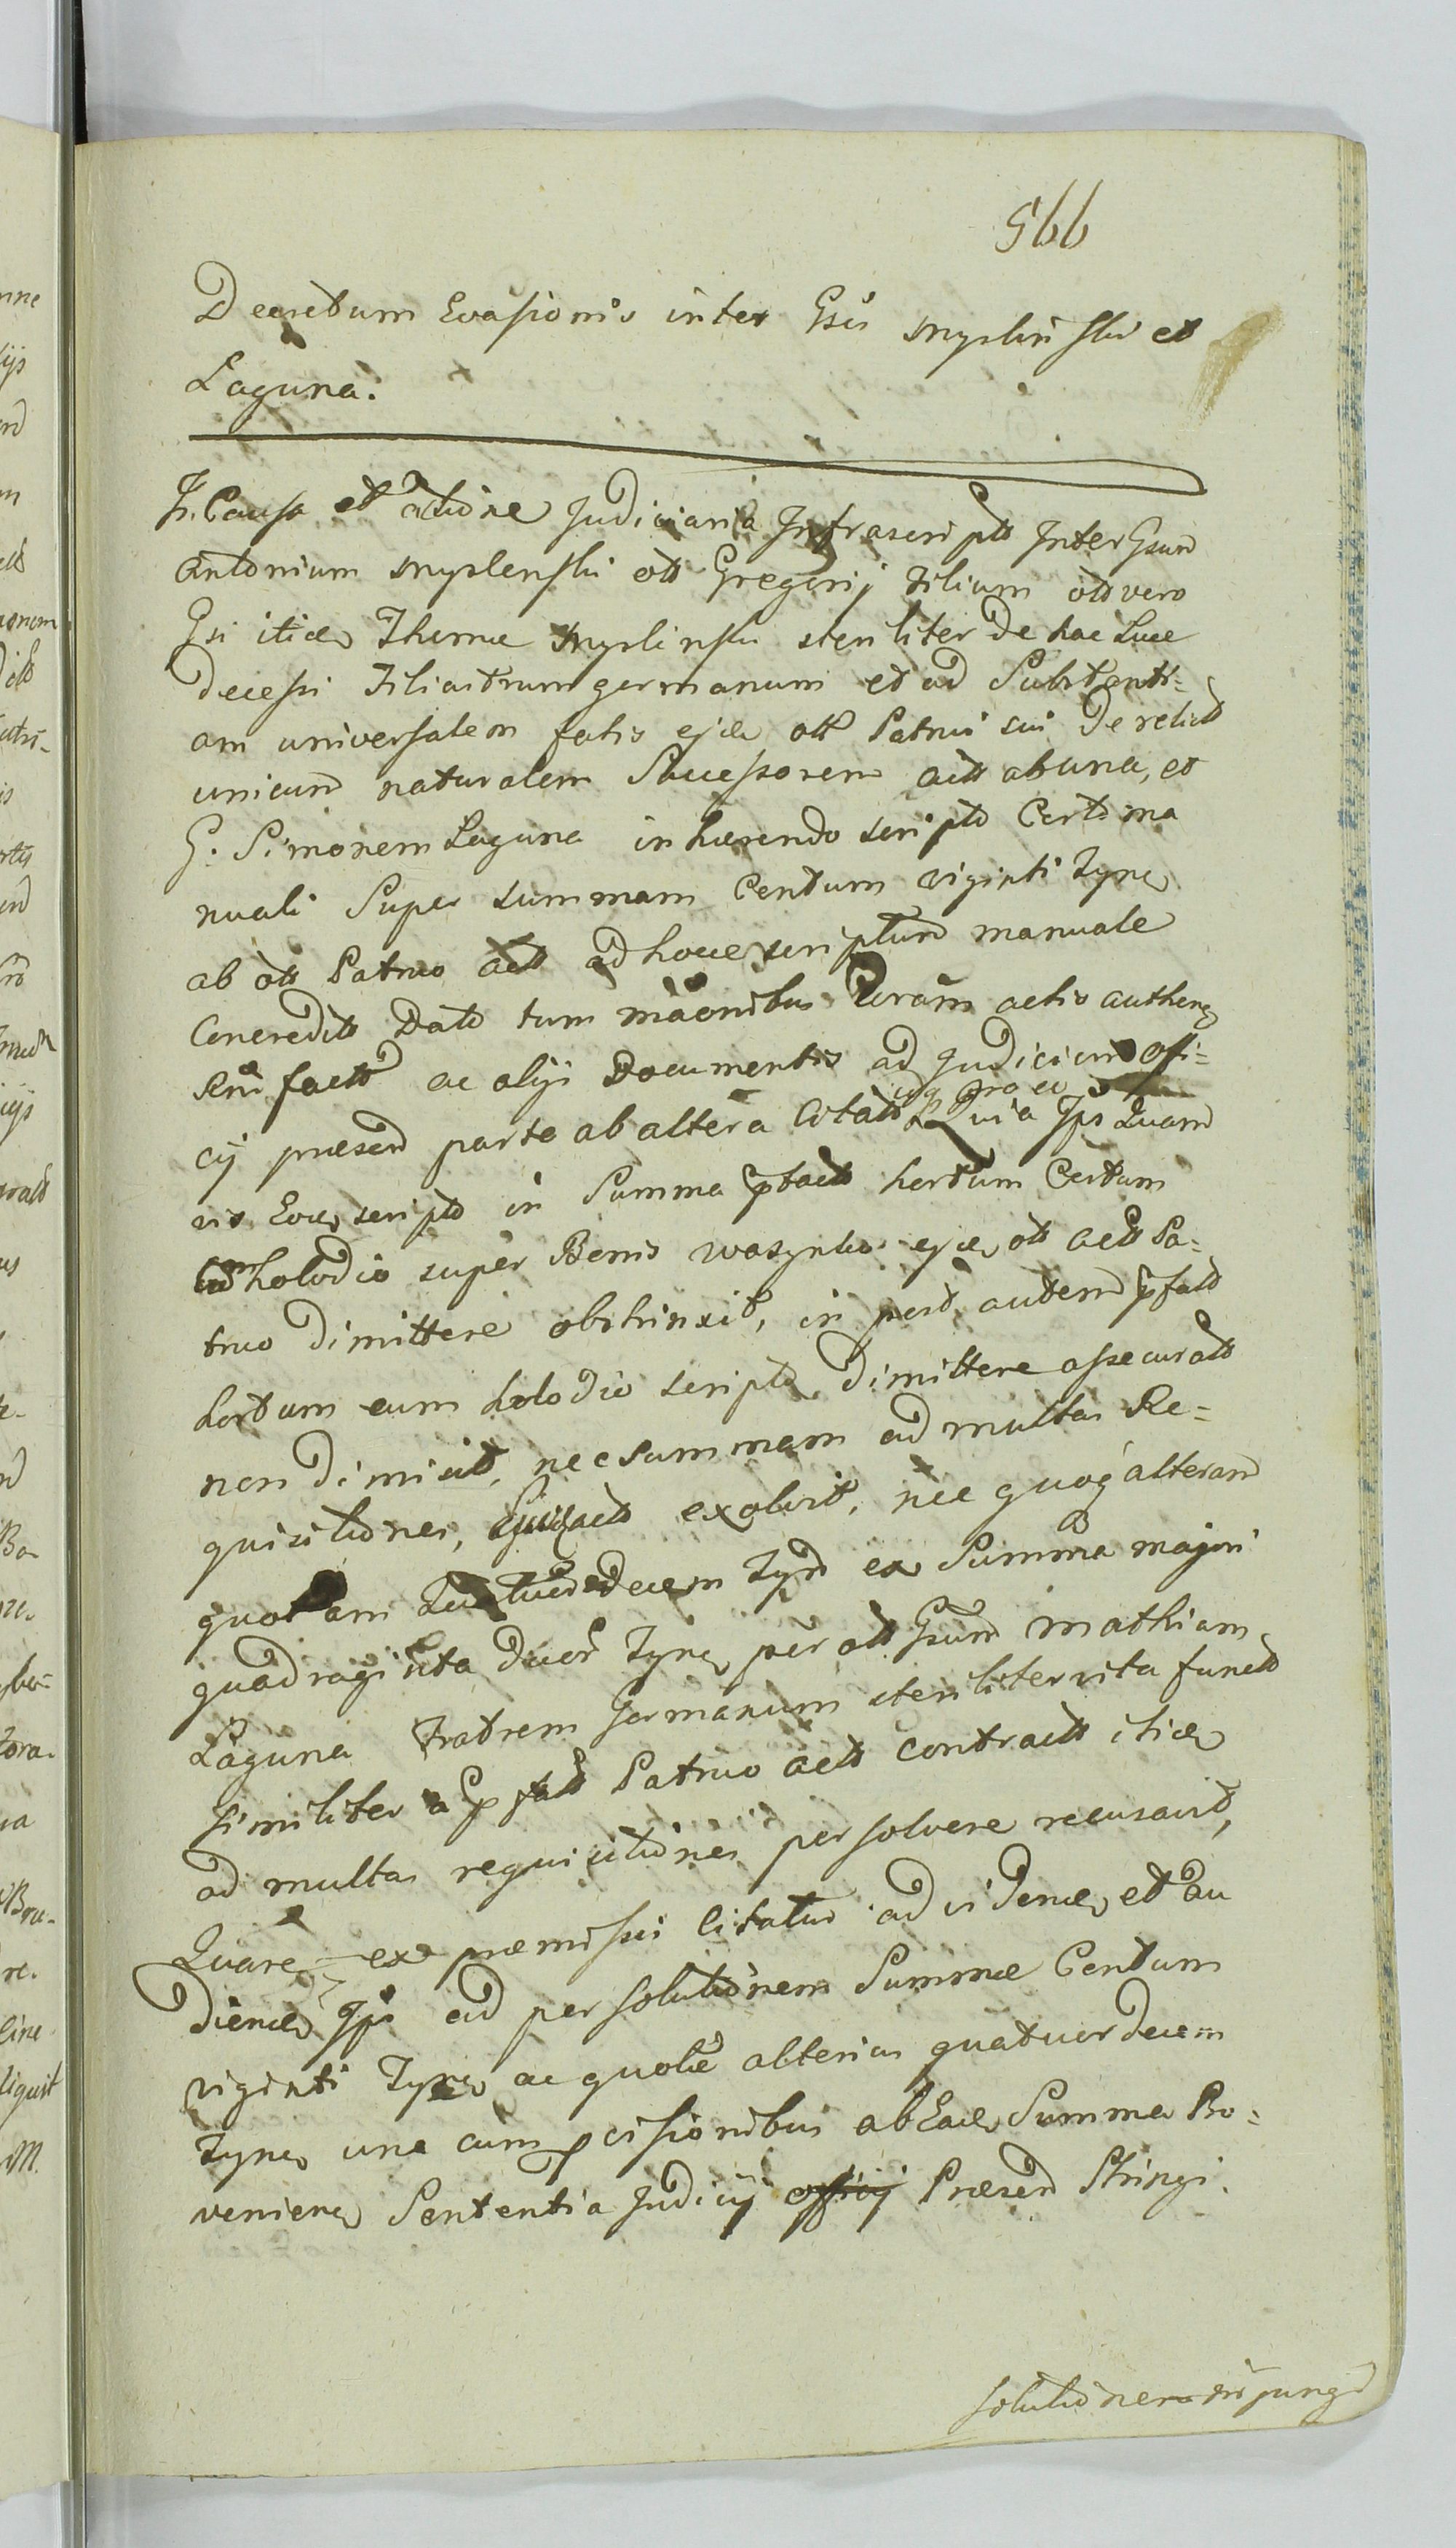 566
Decretum Evasionis inter Gsis Myslinski et
Laguna.
In Causa et actione Judiciaria Infrascript Inter Gsum
Antonium Myslenski olt Gregorij Filium olt vero
Gsi itid Thomæ Myslinski steriliter de hac Luce
decessi Filiastrum germanum et ad Substanti=
am universalem fatis ejd olt Patrui sui derelict
unicum naturalem Successorem actt ab una, et
G. Simonem Laguna inhærendo scripto Certo ma
nuali Super summam Centum viginti Tynf
ab olt Patruo actt ad hocce scriptum manuale
Concredit Dato tum
fact ac alijs Documentis ad Judicium offi=
cij præsen parte ab altera Citatt Quia Ips Quam
vis Eod scripto in Summa hortum Certum
cum holodio super Bonis ejd olt actt Pa=
truo dimittere obstrinxit, in post autem pfatt
hortum cum holodio scripto dimittere assecuratt
non dimisit, nec summam ad multas Re=
quisitiones, exolvit, nec quoq alteram
quotam Tynf ex Summa majori
quadraginta duor Tynf per olt Gsum Mathiam
Laguna Fratrem Germanum steriliter vita funct
similiter a pfatt Patruo actt contractt itid
ad multas requisitiones persolvere recusavit,
Quare ex præmissis Citatur ad vidend et au
diend Ips ad persolutionem Summæ Centum
viginti Tynf ac quotæ alterius quatuordecem
Tynf una cum pvisionibus ab Ead Summa Pro=
venien Sententia Judicij officij Præsen Stringi.
solutionem injungd